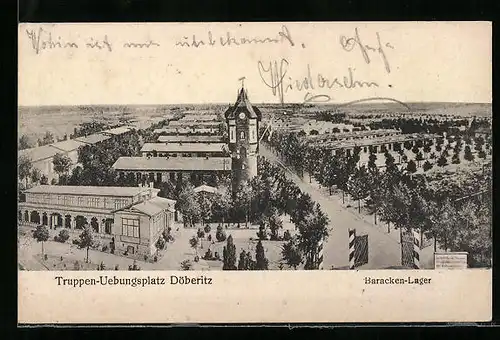 Wohin ich mir unbekannt. Auf
Wiedersehn
Truppen-Uebungsplatz Döberitz
Baracken-Lager